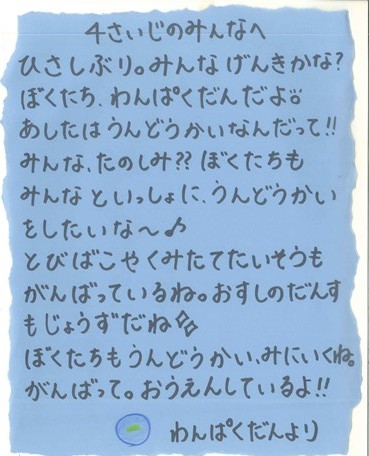 4さいじのみんなへ
ひさしぶり。みんなげんきかな?
ぼくたち、わんぱくだんだよ。
あしたはうんどうかいなんだって!!
みんな、たのしみ??ぼくたちも
みんなといっしょに、うんどうかい
をしたいな〜♪
とびばこやくみたてたいそうも
がんばっているね。おすしのだんす
もじょうずだね
ぼくたちもうんどうかい、みにいくね。
がんばって。おうえんしているよ!!
わんぱくだんより